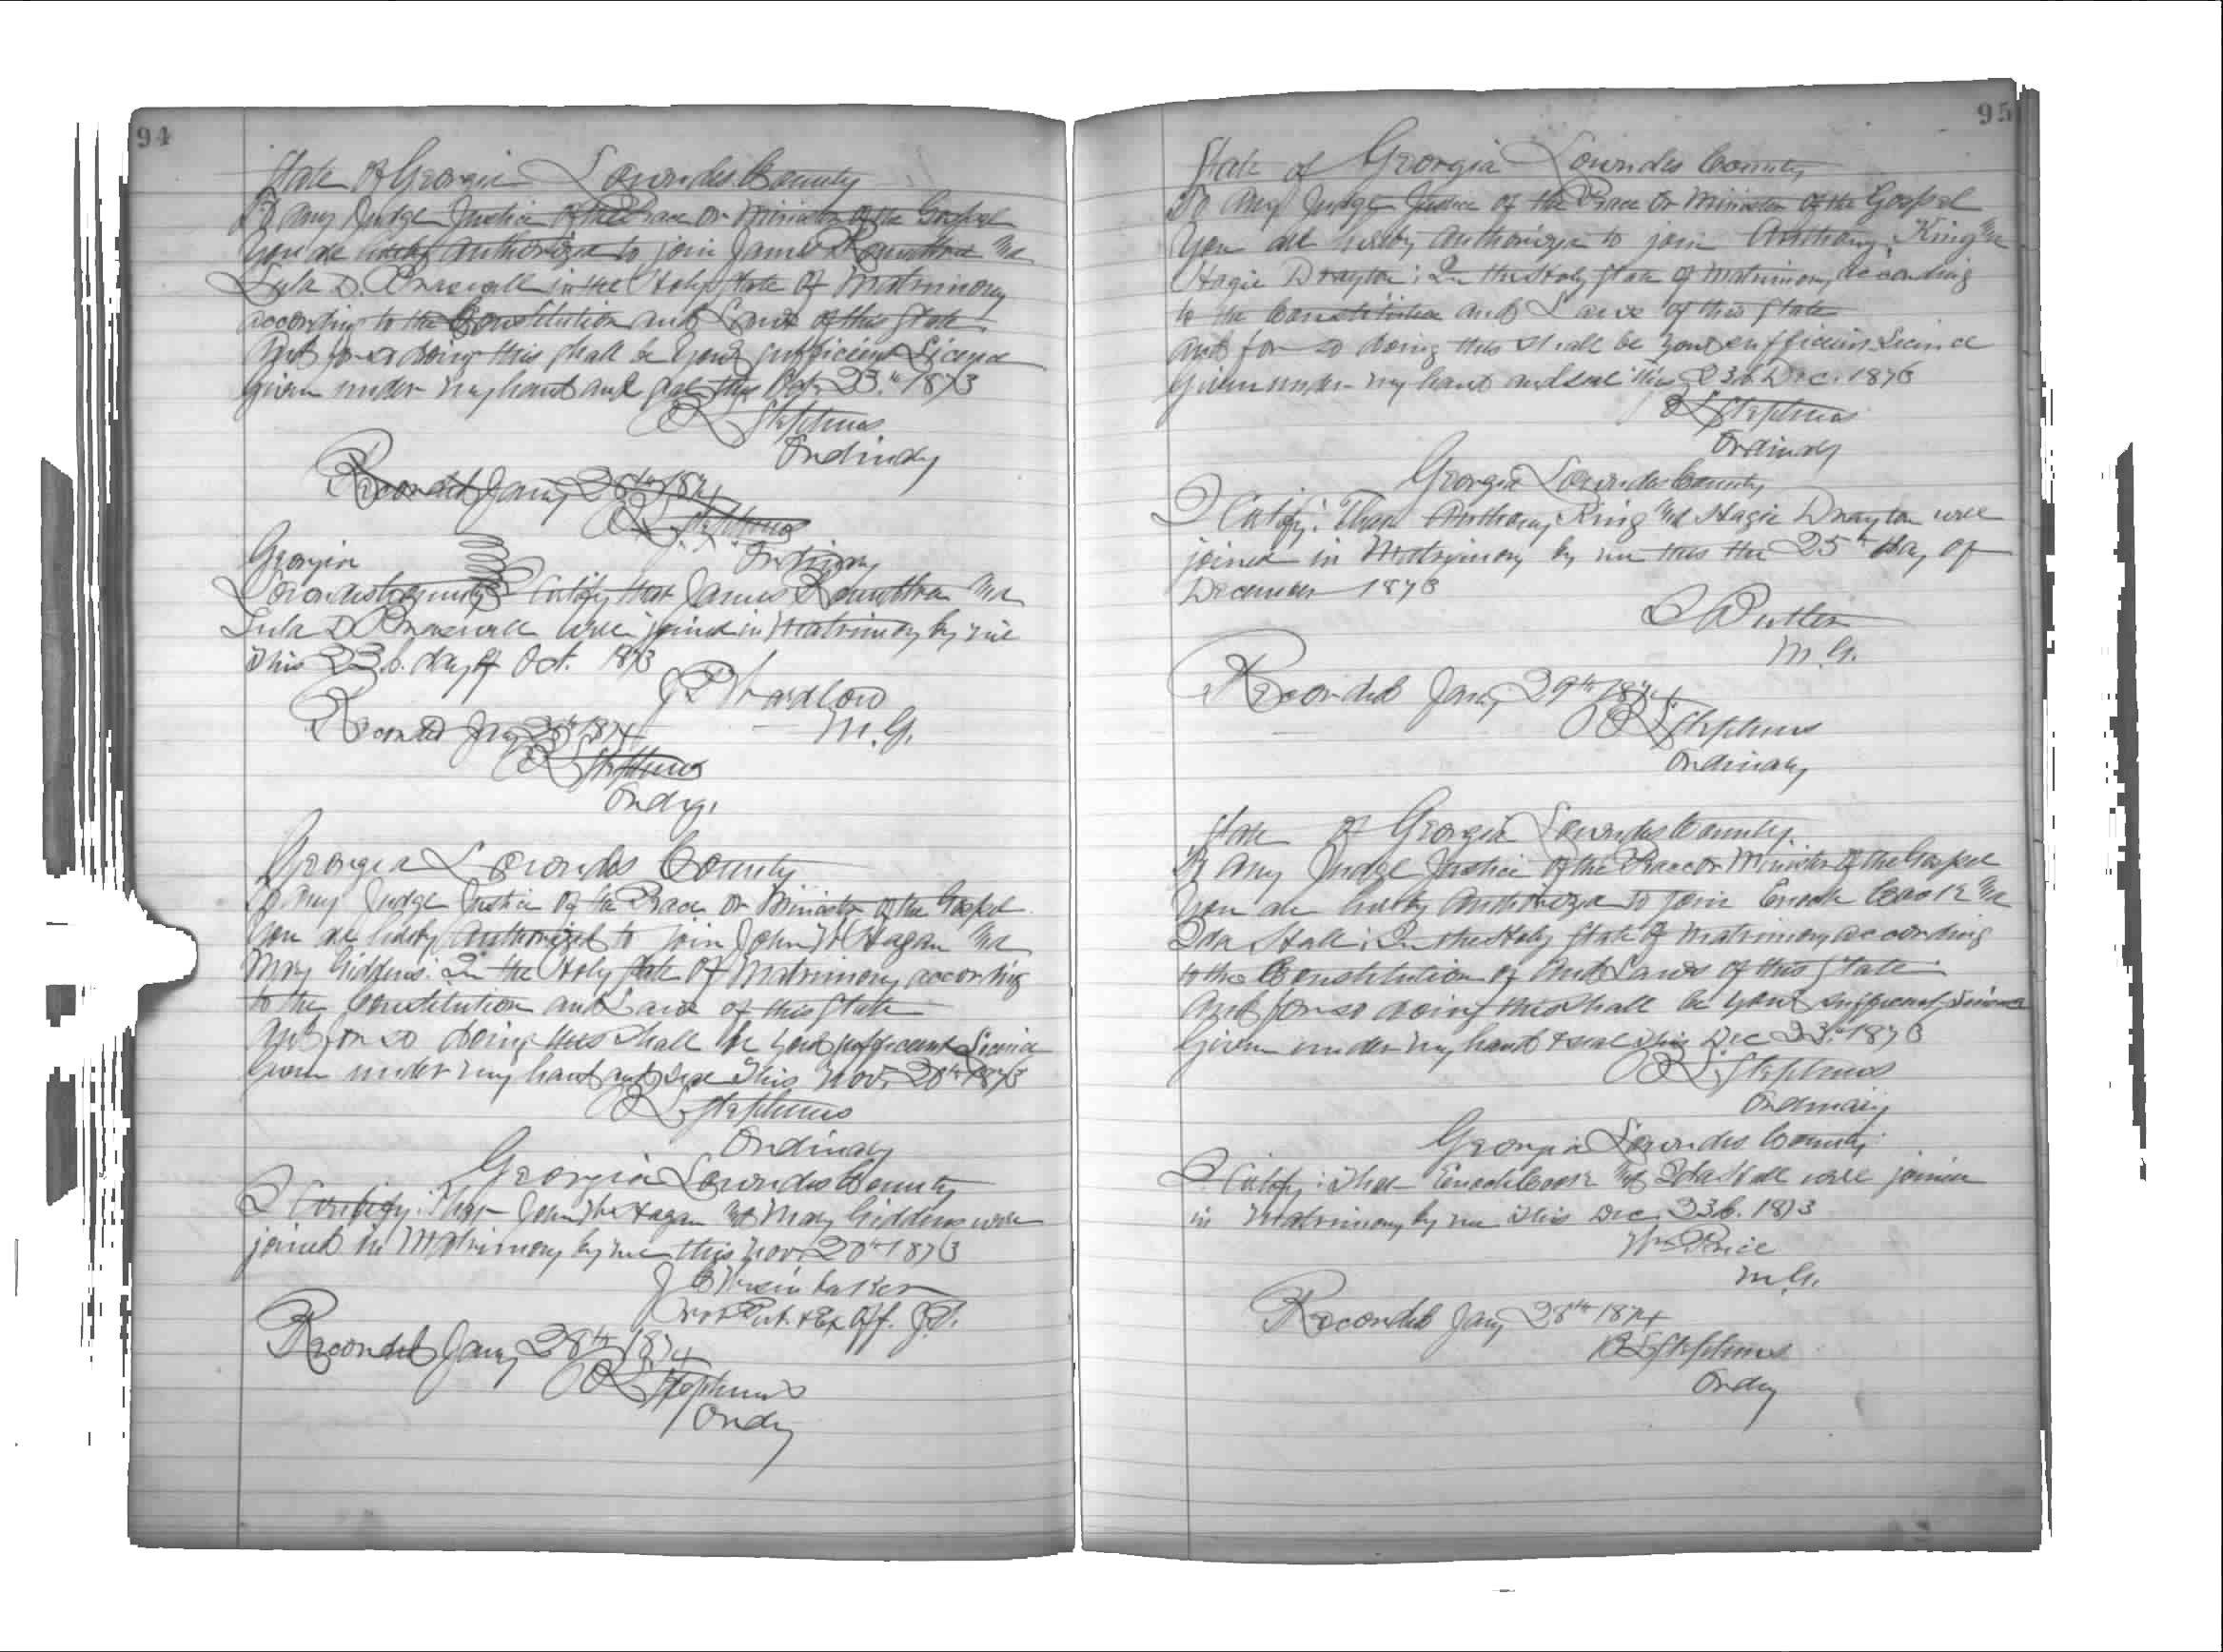 94
State of Georgia Lowndes County
To any Judge Justice of the Peace or Minister of the Gospel
You are hereby authorized to join James Rountree and
Lula D. Braswell in the Holy State of Matrimony
according to the Constitution and Laws of this State
And for so doing this shall be your sufficient License
Given under my hand and seal this Oct 23rd 1873
Stephens
Ordinary
Recorded Jany 28th 1874
Stephens
Ordinary
Georgia
Lowndes County Certify that James Rountree and
Lula D Braswell were joined in Matrimony by me
This 23d. day of Oct. 1873
J P Wardlow
M.G.
Recorded Jany 28th 1874
Stephens
Ordy.
Georgia Lowndes County
To any Judge Justice of the Peace or Minister of the Gospel
You are hereby authorized to join John W Hagan and
Mary Giddens: In the Holy State of Matrimony according
to the Constitution and Laws of this State
And for so doing this shall be your sufficient License
Given under my hand and seal This Nov. 20th 1873
Stephens
Ordinary
Georgia Lowndes County
I Certify: That John W Hagan and Mary Giddens were
joined in Matrimony by me this Nov. 20th 1873
J B
Not Pub. & Ex Off. J.P.
Recorded Jany 28th 1874
Stephens
Ordy
95
State of Georgia Lowndes County
To any Judge Justice of the Peace or Minister of the Gospel
You are hereby authorize to join Anthony King and
Hagie Drayton; In the Holy State of Matrimony according
to the Constitution and Laws of this State
And for so doing this shall be your sufficien License
Given under my hand and seal this 23d Dec. 1873
Stephens
Ordinary
Georgia Lowndes County
I Certify: That Anthony King and Hagie Drayton were
joined in Matrimony by me this the 25th day of
December 1873
Butler
M.G.
Recorded Jany 29th 1874
Stephens
Ordinary
State of Georgia Lowndes County.
To any Judge Justice of the Peace or Minister of the Gospel
You are hereby Authorize to join Enoch Cook and
Ida Hall; In the Holy State of Matrimony according
to the Constitution of and Laws of this State
And for so doing this shall be your sufficient License
Given under my hand & seal this Dec 23rd 1873
Stephens
Ordinary
Georgia Lowndes County
I Certify: That Enoch Cook and Ida Hall were joined
in Matrimony by me This Dec. 23d. 1873
Wm Price
M.G.
Recorded Jany 28th 1874
Stephens
Ordy